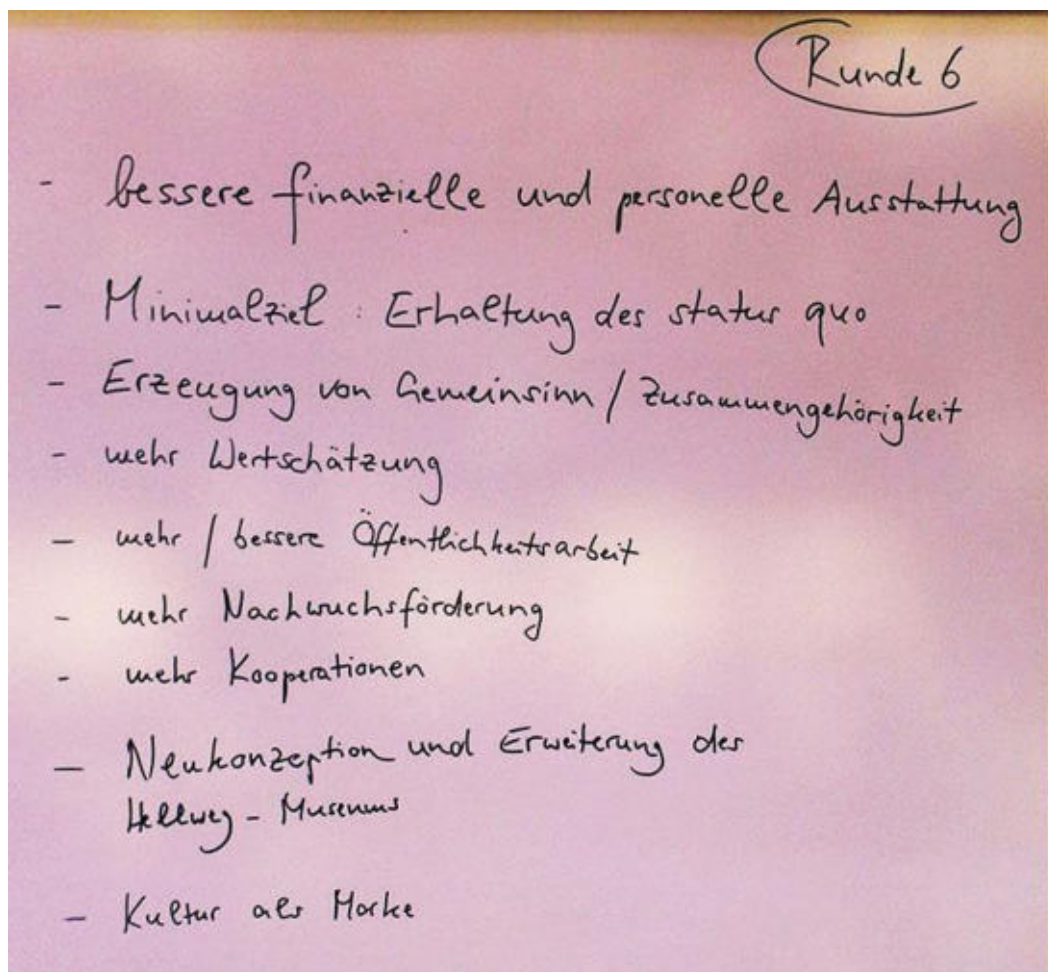 Runde 6
- bessere finanzielle und personelle Ausstattung
- Minimalziel: Erhaltung des status quo
- Erzeugung von Gemeinsinn / Zusammengehörigkeit
- mehr Wertschätzung
- mehr / bessere Öffentlichkeitsarbeit
- mehr Nachwuchsförderung
- mehr Kooperationen
- Neukonzeption und Erweiterung des
Hellweg-Museums
- Kultur als Marke